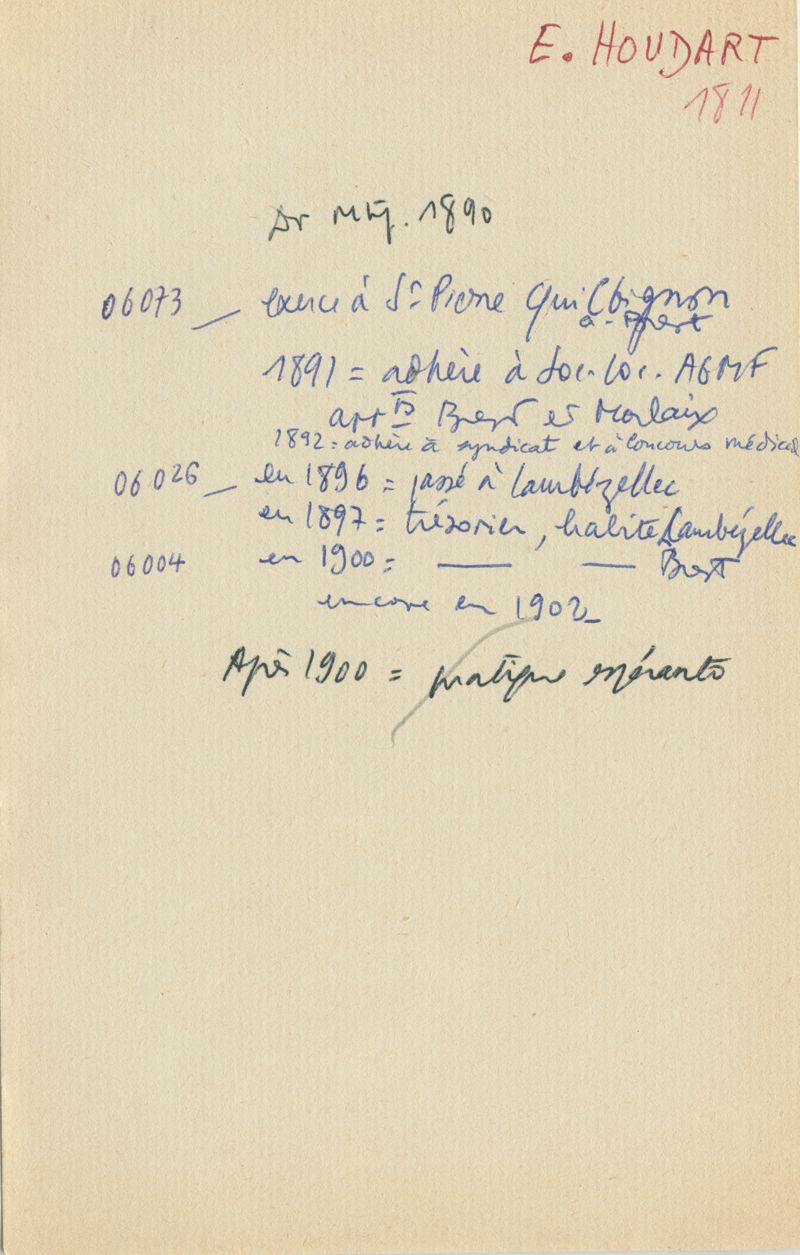 E. HOUDART
1811
Dr 1890
06073 — exerce à St Pierre Quilbignon
à Brest
1891 = adhère à Soc. loc. AGMF
arrts Brest et Morlaix
1892 = adhère à syndicat et à Concours médical
06026 — en 1896 = passé à Lambézellec
en 1897 = trésorier, habite Lambézellec
06004 en 1900 = — — Brest
encore en 1902 —
Après 1900 = pratique espéranto